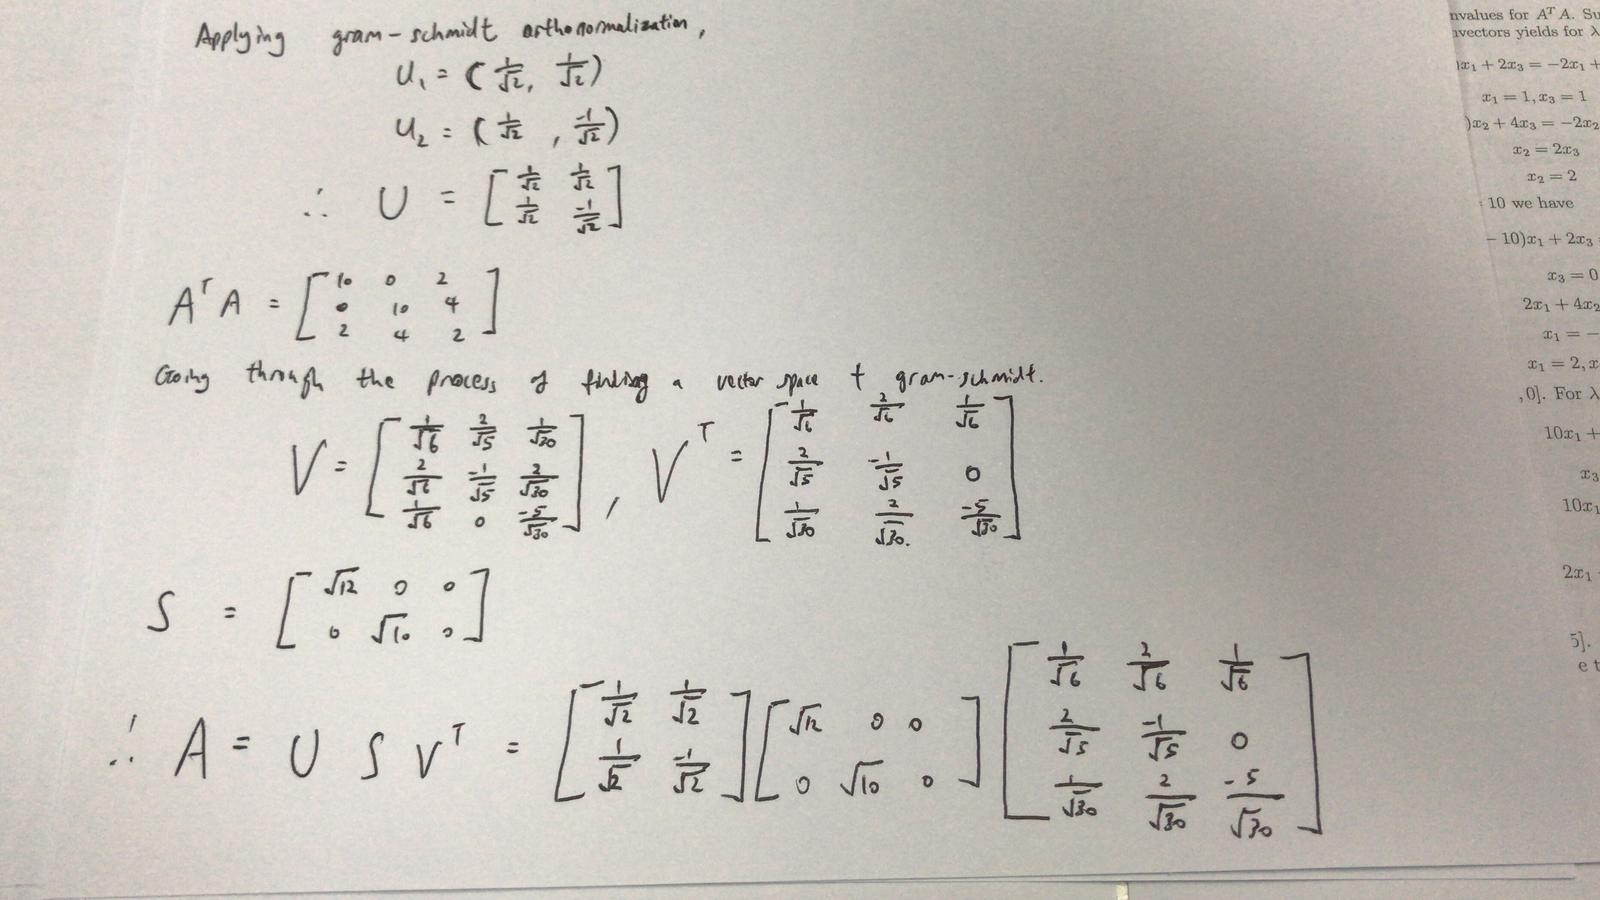 Applying gram-schmidt orthonormalization,
U₁ = (1/√2, 1/√2)
U₂ = (1/√2, -1/√2)
∴ U = [1/√2 1/√2
1/√2 -1/√2]
AᵀA = [10 0 2
0 10 4
2 4 2]
Going through the process of finding a vector space + gram-schmidt.
V = [1/√6 2/√5 1/√30
2/√6 -1/√5 2/√30
1/√6 0 -5/√30]
, Vᵀ = [1/√6 2/√6 1/√6
2/√5 -1/√5 0
1/√30 2/√30. -5/√30]
S = [√12 0 0
0 √10 0]
∴ A = U S Vᵀ = [1/√2 1/√2
1/√2 -1/√2]
[√12 0 0
0 √10 0]
[1/√6 2/√6 1/√6
2/√5 -1/√5 0
1/√30 2/√30 -5/√30]
nvalues for AᵀA. Su
nvectors yields for λ
)x₁ + 2x₃ = −2x₁ +
x₁ = 1, x₃ = 1
)x₂ + 4x₃ = −2x₂
x₂ = 2x₃
x₂ = 2
10 we have
− 10)x₁ + 2x₃
x₃ = 0
2x₁ + 4x₂
x₁ = −
x₁ = 2, x
, 0]. For λ
10x₁ +
x₃
10x₁
2x₁
5].
e t